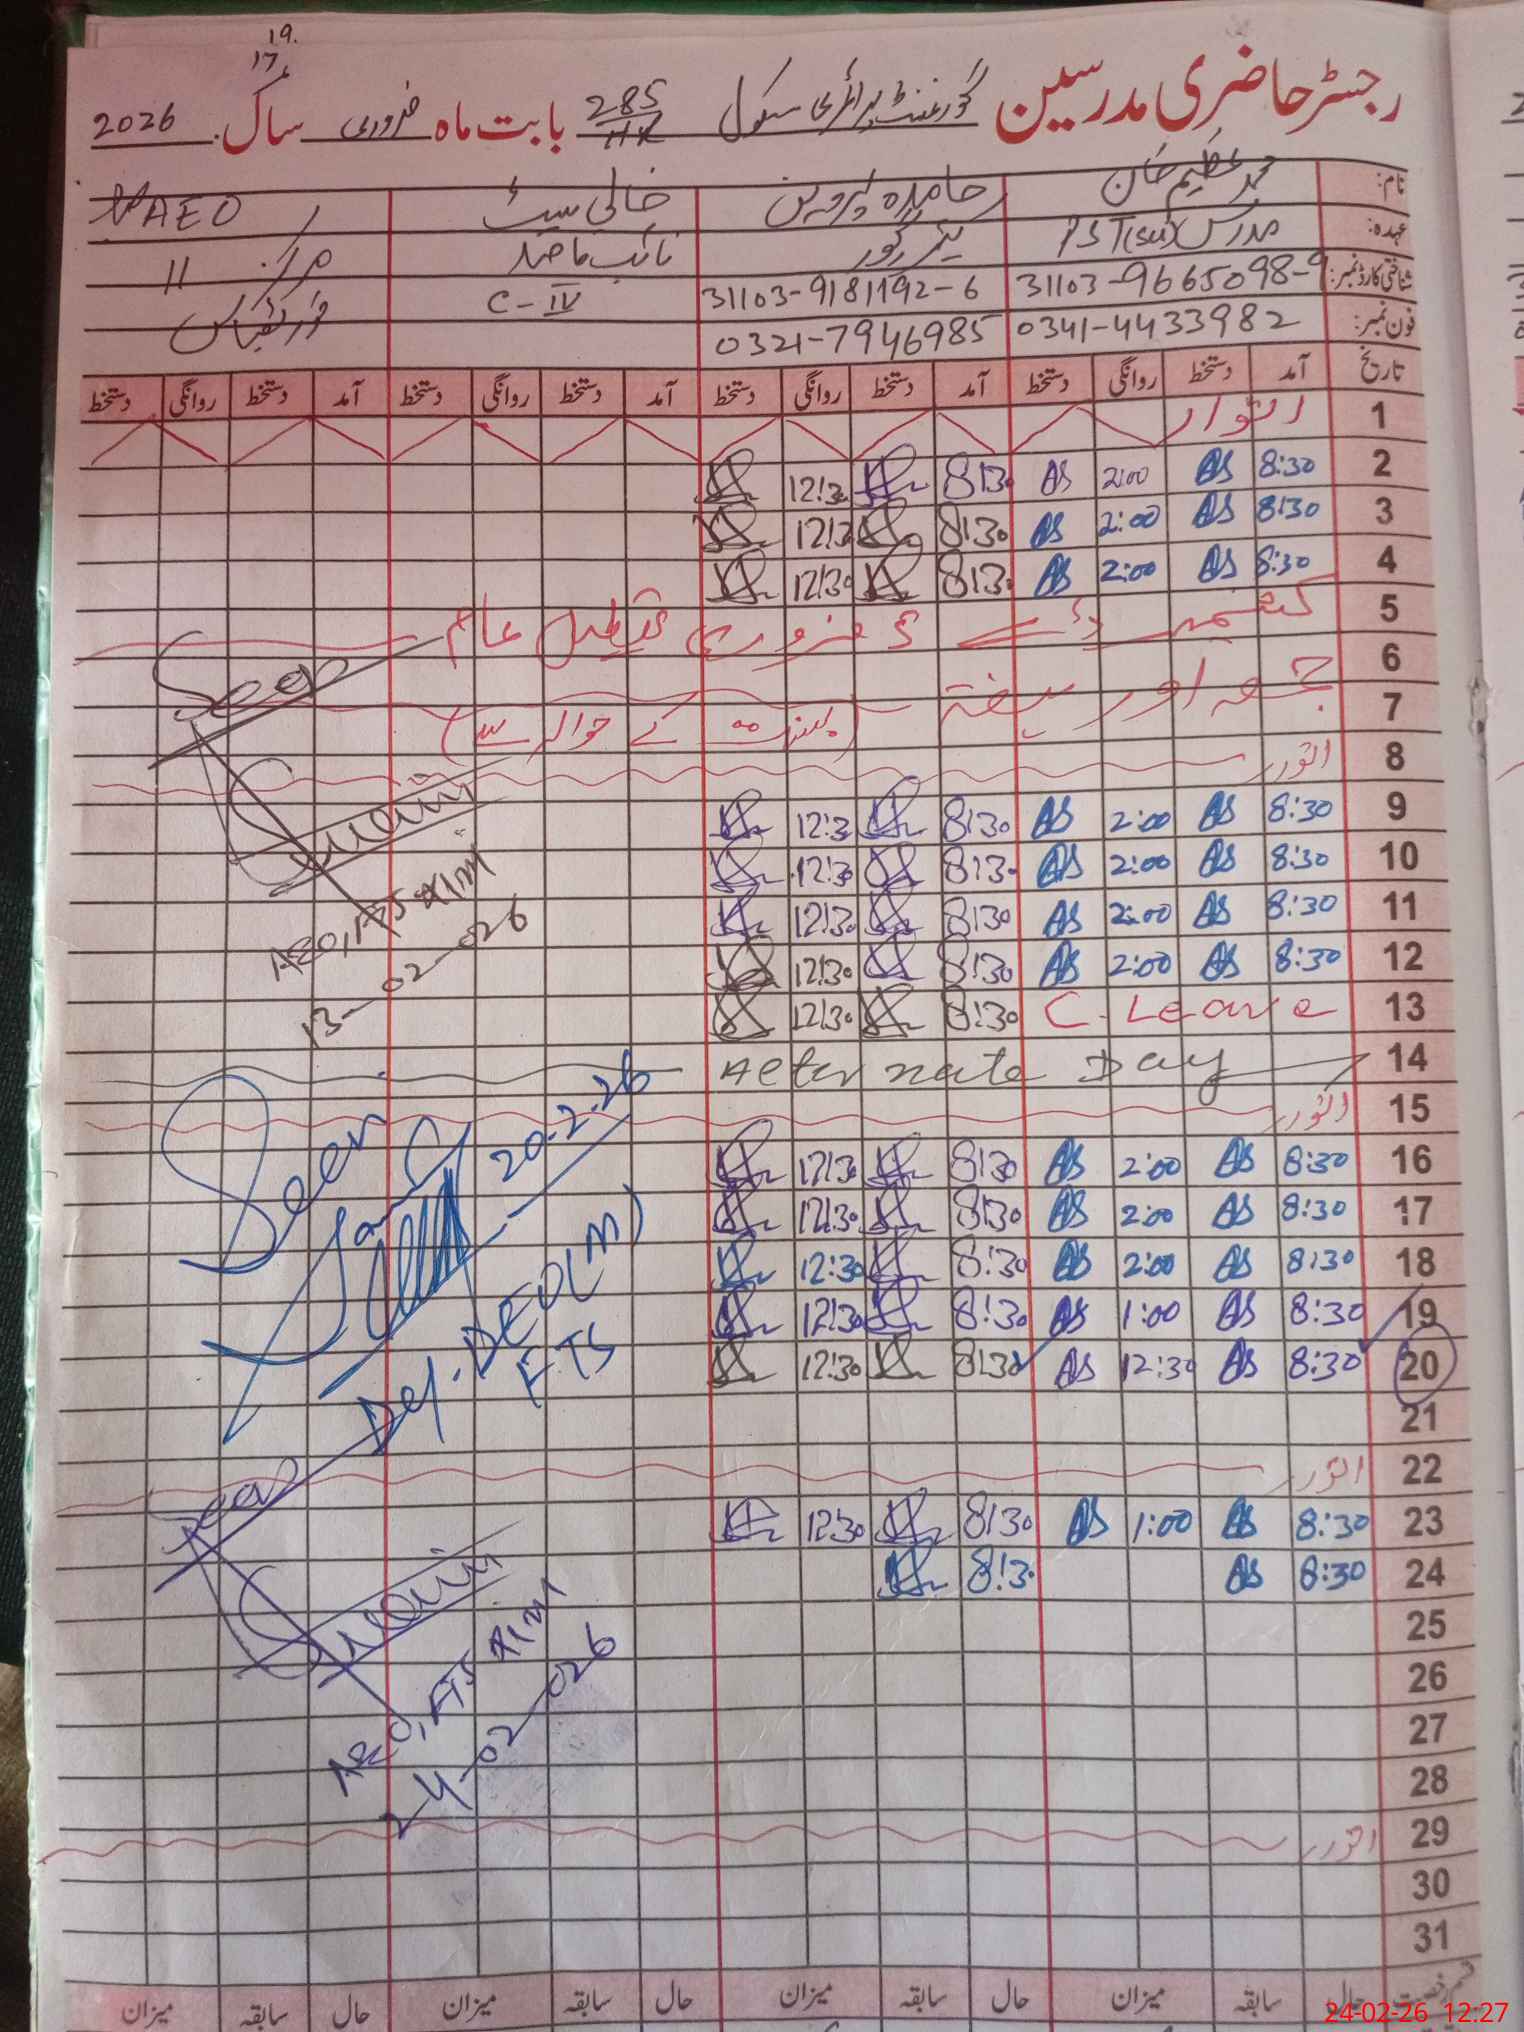 19.
17,
رجسٹر حاضری مدرسین گورنمنٹ پرائمری سکول 285/HR بابت ماہ فروری سال 2026
نام: محمد عظیم خان حامدہ پروین خالی سیٹ AEO
عہدہ: مدرس PST(sci) کیئر گیور نائب قاصد مرکز 11
شناختی کارڈ نمبر: 31103-9665098-9 31103-9181192-6 C-IV
فون نمبر: 0341-4433982 0321-7946985
تاریخ آمد دستخط روانگی دستخط آمد دستخط روانگی دستخط آمد دستخط روانگی دستخط آمد دستخط روانگی دستخط
1 اتوار
2 8:30 AS 2:00 AS 8:30 12:30
3 8:30 AS 2:00 AS 8:30 12:30
4 8:30 AS 2:00 AS 8:30 12:30
5 کشمیر ڈے 5 فروری تعطیل عام
6 جمعہ اور ہفتہ
7 (بسنت کے حوالہ سے)
8 اتوار
9 8:30 AS 2:00 AS 8:30 12:30
10 8:30 AS 2:00 AS 8:30 12:30
11 8:30 AS 2:00 AS 8:30 12:30
12 8:30 AS 2:00 AS 8:30 12:30
13 C. Leave 8:30 12:30
14 Alternate Day
15 اتوار
16 8:30 AS 2:00 AS 8:30 12:30
17 8:30 AS 2:00 AS 8:30 12:30
18 8:30 AS 2:00 AS 8:30 12:30
19 8:30 AS 1:00 AS 8:30 12:30
20 8:30 AS 12:30 AS 8:30 12:30
21
22 اتوار
23 8:30 AS 1:00 AS 8:30 12:30
24 8:30 AS 8:30
25
26
27
28
29 اتوار
30
31
Seen
AEO, FTS
13-02-026
Seen
20-2-26
Dy. DEO(M)
FTS
Seen
AEO, FTS
24-02-026
قسم رخصت حال سابقہ میزان حال سابقہ میزان حال سابقہ میزان حال سابقہ میزان
24-02-26 12:27